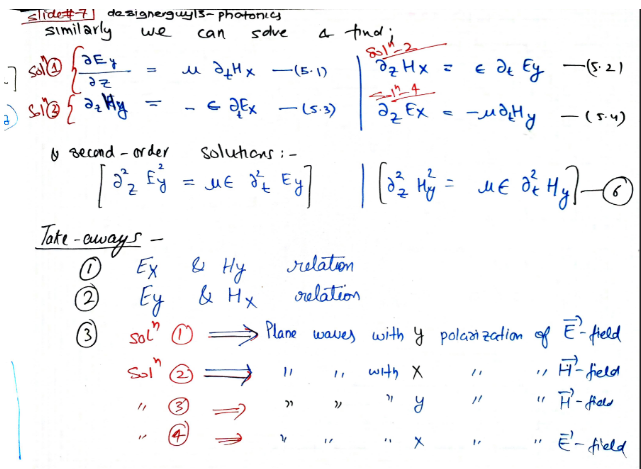 slide#7 | designerguy13-photonics
similarly we can solve & find;
Solⁿ① { ∂Ey/∂z = μ ∂tHx —(5.1)
Solⁿ-2
∂z Hx = ϵ ∂t Ey —(5.2)
Solⁿ③ { ∂z Hy = - ϵ ∂tEx —(5.3)
Solⁿ-4
∂z Ex = -μ∂tHy —(5.4)
& second-order solutions:-
[∂²z E²y = μϵ ∂²t Ey] | [∂²z H²y = μϵ ∂²t Hy]—⑥
Take-aways -
① Ex & Hy relation
② Ey & Hx relation
③ Solⁿ ① ⟹ Plane waves with y polarization of E⃗-field
Solⁿ ② ⟹ " " with x " " H⃗-field
" ③ ⟹ " " " y " " H⃗-field
" ④ ⟹ " " " x " " E⃗-field